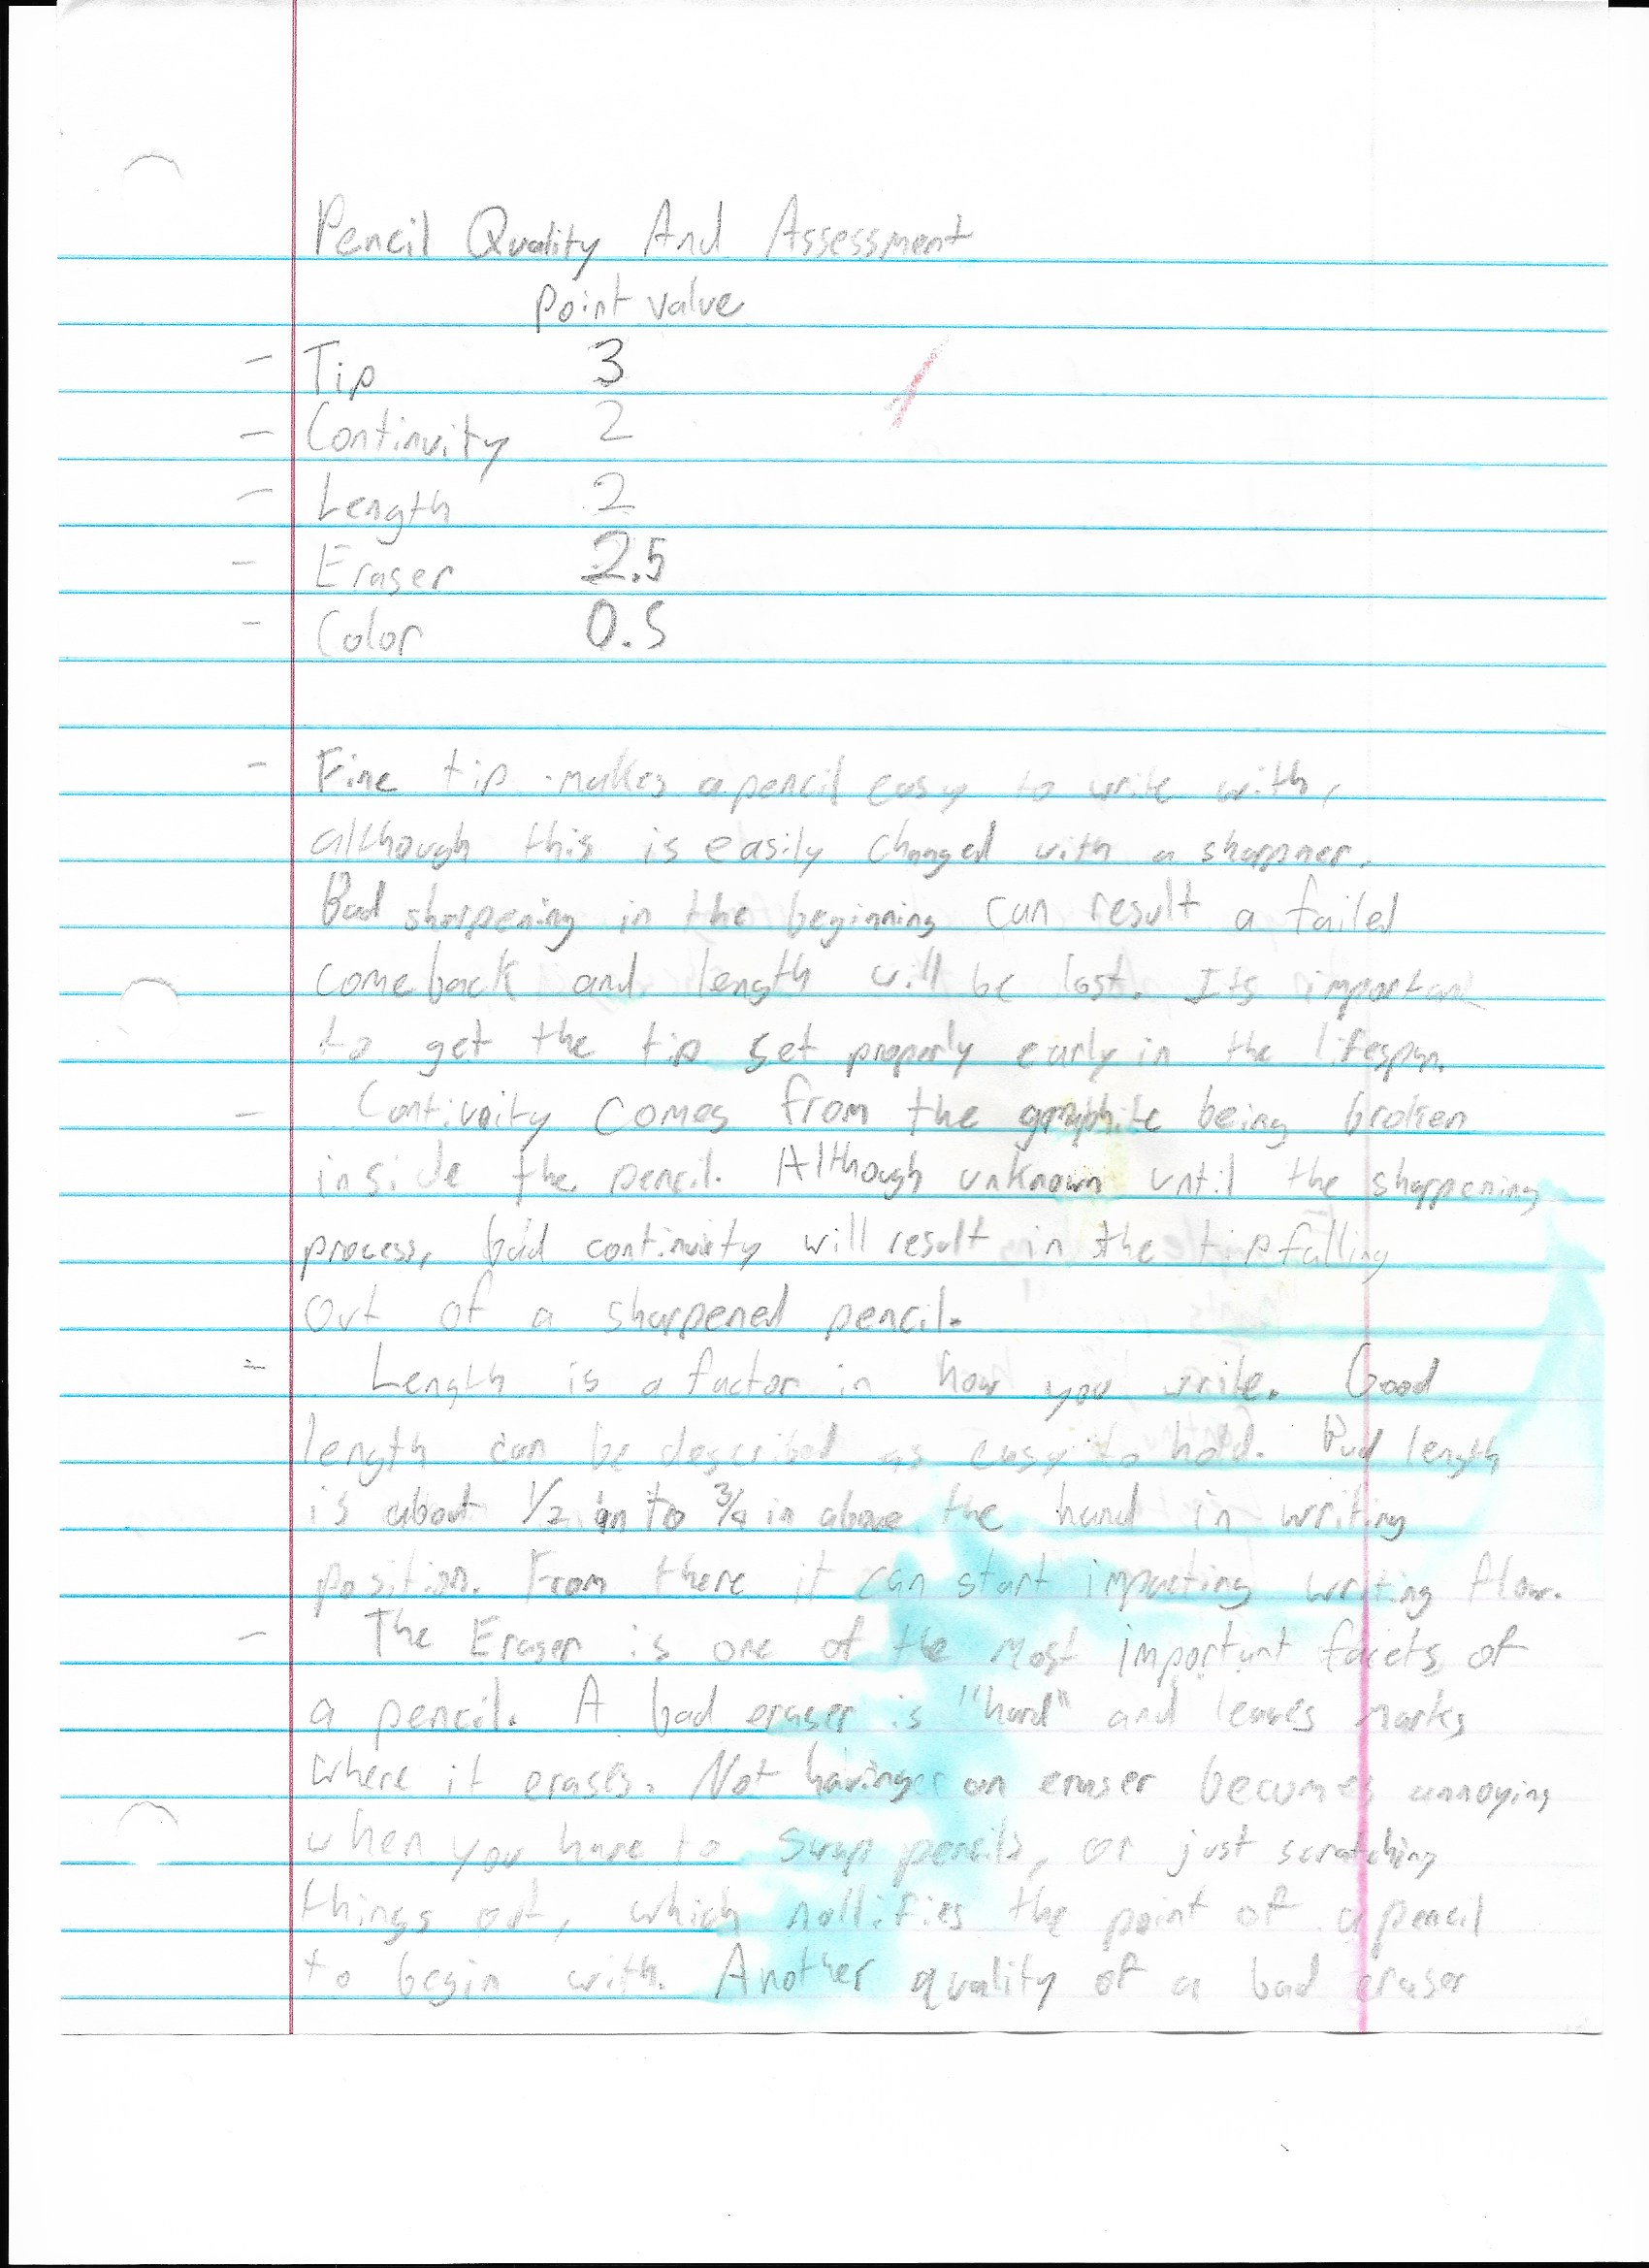 Pencil Quality And Assessment
point value
- Tip 3
- Continuity 2
- Length 2
- Eraser 2.5
- Color 0.5
- Fine tip makes a pencil easy to write with,
although this is easily changed with a sharpner.
Bad sharpening in the beginning can result a failed
comeback and length will be lost. Its important
to get the tip set properly early in the lifespan.
- Continuity comes from the graphite being broken
inside the pencil. Although unknown until the sharppening
process, bad continuity will result in the tip falling
out of a sharpened pencil.
- Length is a factor in how you write. Good
length can be described as easy to hold. Bad length
is about 1/2 in to 3/4 in above the hand in writing
position. From there it can start impacting writing flow.
- The Eraser is one of the most important facets of
a pencil. A bad eraser is "hard" and leaves marks
where it erases. Not having an eraser becomes annoying
when you have to swap pencils, or just scratching
things out, which nullifies the point of a pencil
to begin with. Another quality of a bad eraser